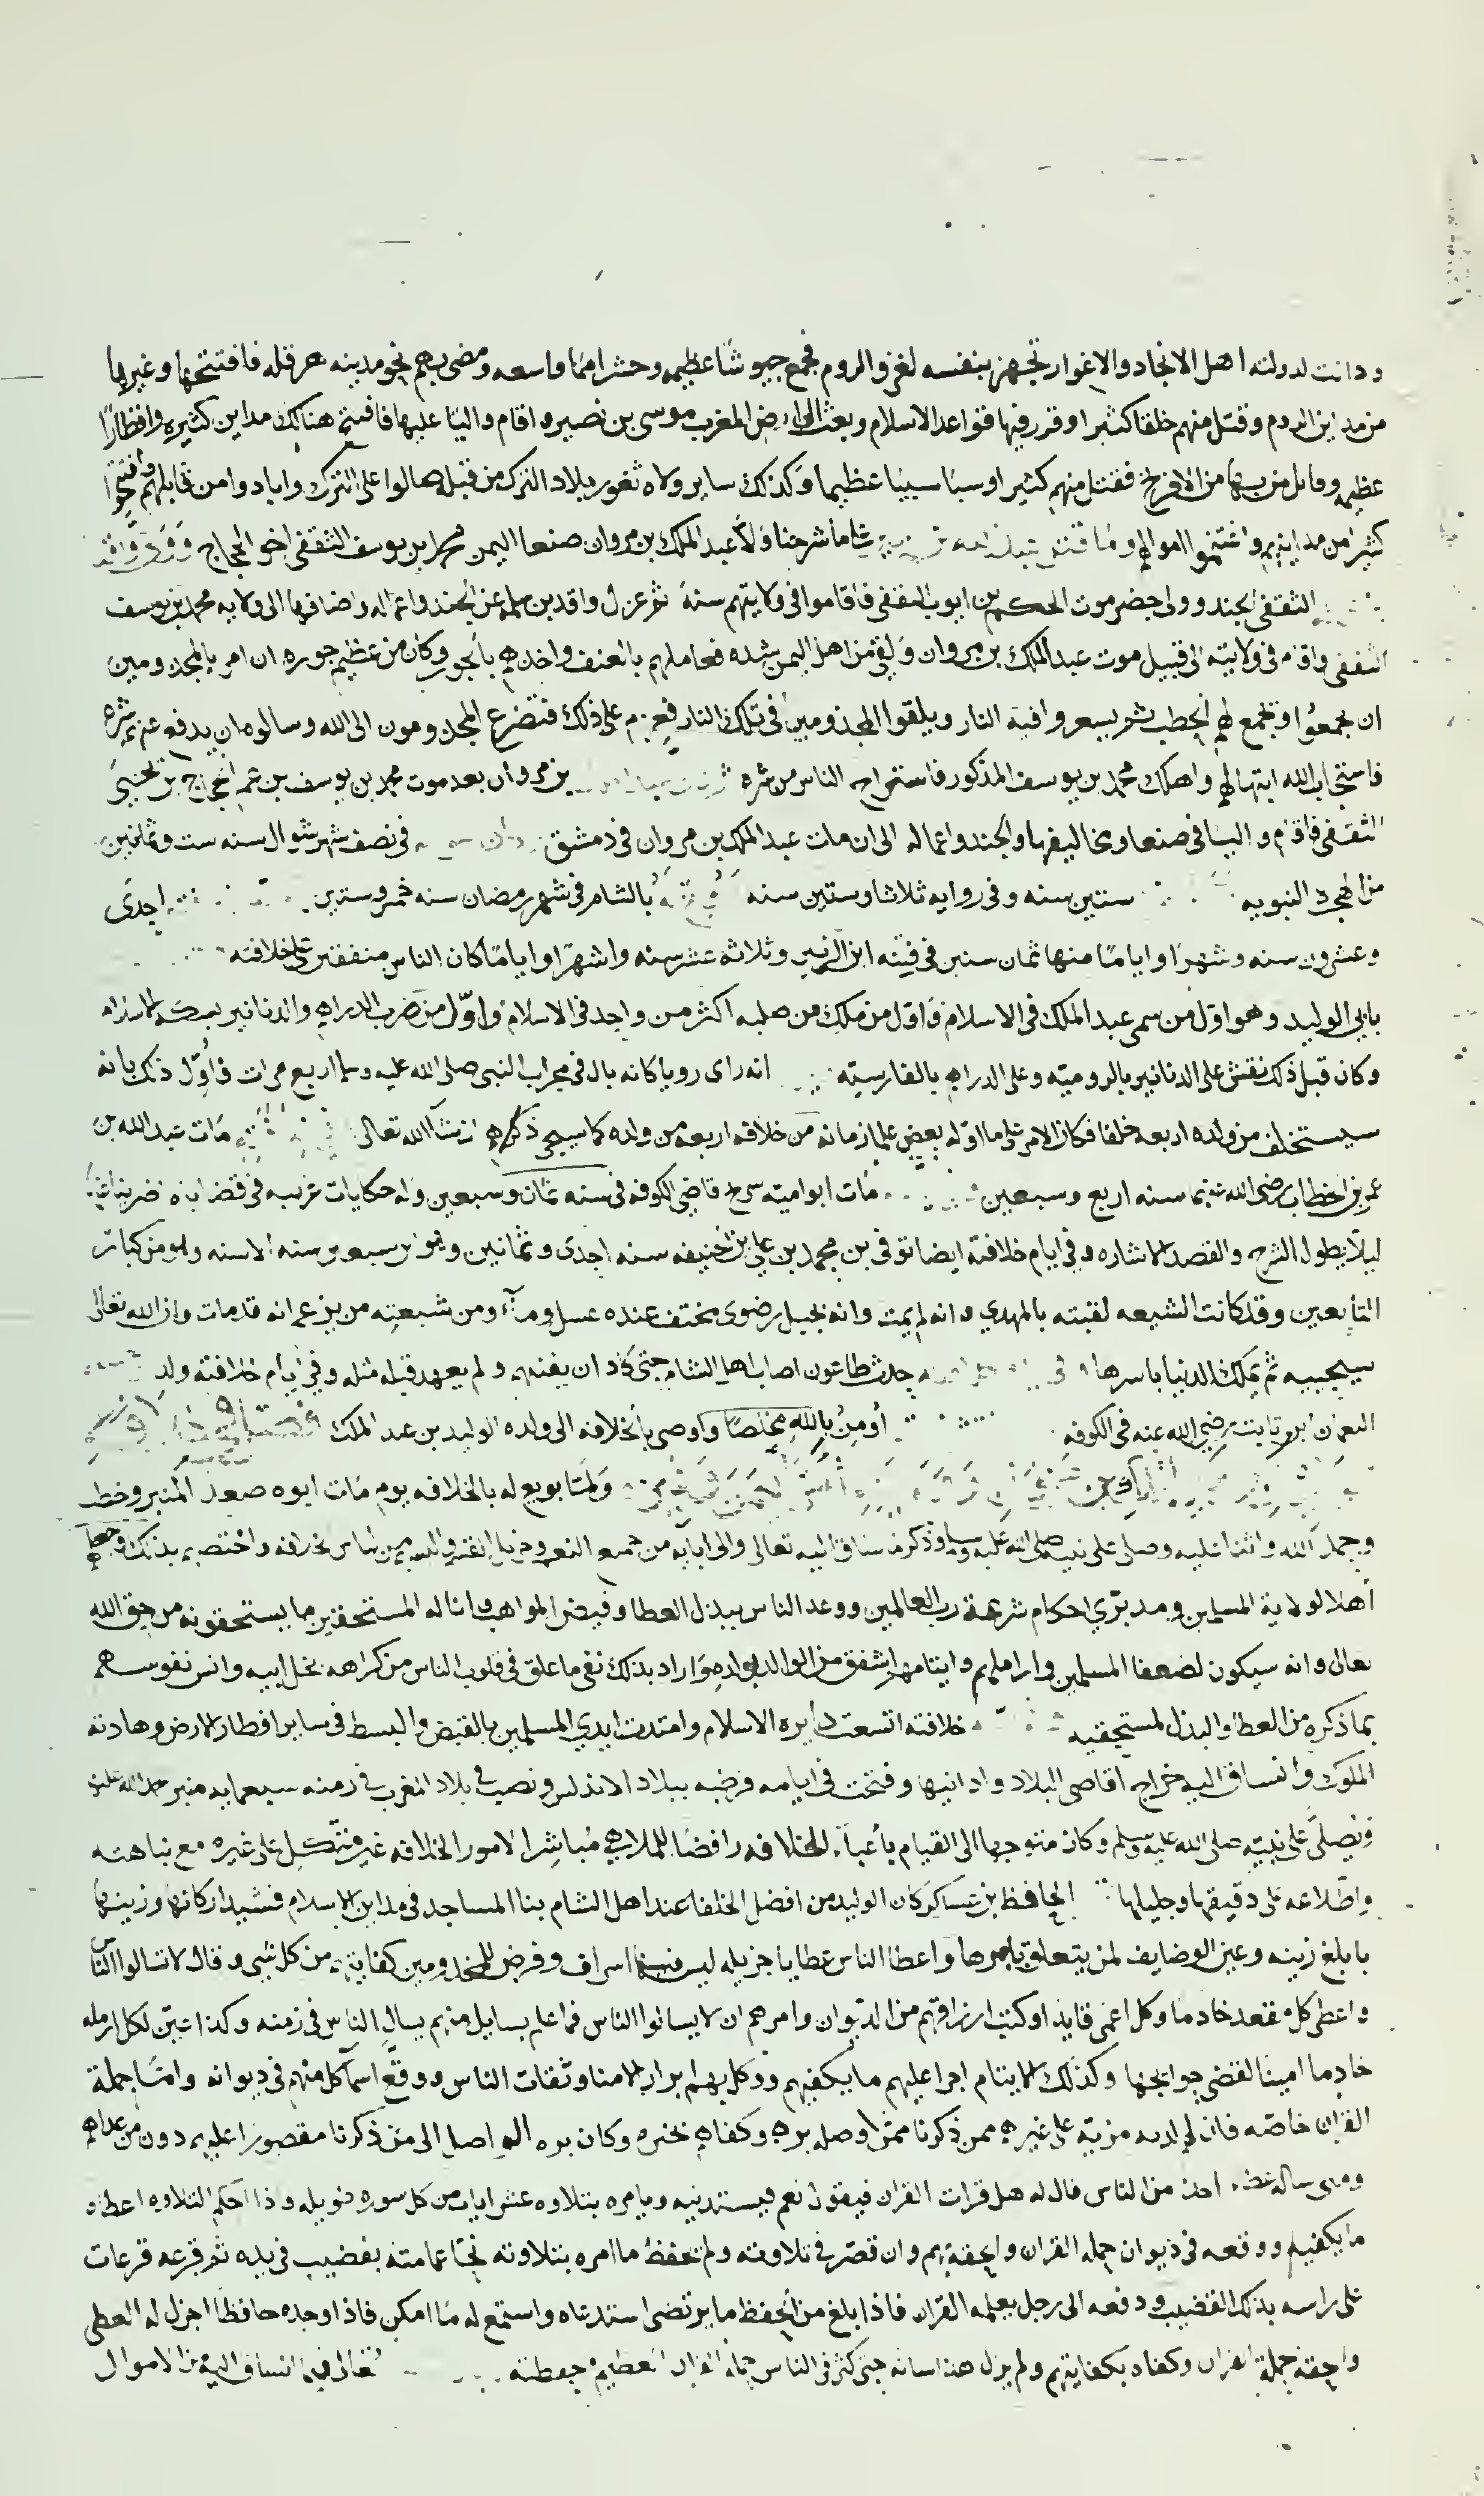 ودانت لدولته اهل الانجاد والاغوار تجهز بنفسه لغزو الروم فجمع جيوشا عظيمه وحشر امما واسعه ومضى بهم نحو مدينه هرقله فافتتحها وغيرها
من مداين الروم وقتل منهم خلقا كثيرا وقرر فيها قواعد الاسلام وبعث الى ارض المغرب موسى بن نصير واقام واليا عليها فافتتح هنالك مداين كثيره واقطارا
عظيمه وقاتل من بها من الافرنج فقتل منهم كثيرا وسبا سبيا عظيما وكذلك ساير ولاه ثغور بلاد الترك من قبله صالوا على الترك وابادوا من قابلهم وافتتحوا
كثيرا من مداينهم واغتنموا اموالهم ولما قتل شاما شرحنا ولا عبد الملك بن مروان صنعا اليمن محمد ابن يوسف الثقفي اخو الحجاج وولى واقد
الثقفي الجند وولى حضرموت الحكم بن ايوب الثقفي فاقاموا في ولايتهم سنة ثم عزل واقد بن سلمه عن الجند واعماله واضافها الى ولايه محمد بن يوسف
الثقفي واقام في ولايته الى قبيل موت عبد الملك بن مروان ولقي من اهل اليمن شده فعاملهم بالعنف واخذهم بالجور وكان من عظيم جوره ان امر بالمجذومين
ان يجمعوا ويجمع لهم الحطب ثم يسعروا فيه النار ويلقوا المجذومين في تلك النار فعزم على ذلك فتضرع المجذومون الى الله وسالوه ان يدفع عنهم شره
فاستجاب الله ابتهالهم واهلك محمد بن يوسف المذكور فاستراح الناس من شره بن مروان بعد موت محمد بن يوسف بن عم الحجاج بن يحيى
الثقفي فاقام واليا في صنعا ومخاليفها والجند واعماله الى ان مات عبد الملك بن مروان في دمشق في نصف شهر شوال سنه ست وثمانين
من الهجره النبويه ستين سنه وفي روايه ثلاثا وستين سنه بالشام في شهر رمضان سنه خمس وستين احدى
وعشرون سنه وشهرا واياما منها ثمان سنين في فتنه ابن الزبير وثلاثه عشر سنه واشهرا واياما كان الناس متفقين على خلافته
بابي الوليد وهو اول من سمى عبد الملك في الاسلام واول من ملك من صلبه اكثر من واحد في الاسلام واول من ضرب الدراهم والدنانير بسكه الاسلام
وكان قبل ذلك نقش على الدنانير بالروميه وعلى الدراهم بالفارسيه انه راى رويا كانه بال في محراب النبي صلى الله عليه وسلم اربع مرات فاول ذلك بانه
سيستخلف من ولده اربعه خلفا فكان الامر على ما اوله بعض علما زمانه من خلافه اربعه من ولده كما سيجي ذكرهم ان شا الله تعالى مات عبد الله بن
عمر بن الخطاب رضي الله عنهما سنه اربع وسبعين مات ابو اميه شريح قاضي الكوفه في سنه ثمان وسبعين وله حكايات غريبه في قضاياه اضربنا عنها
ليلا يطول الشرح والقصد الاشاره وفي ايام خلافته ايضا توفي بن محمد بن علي بن الحنيفه سنه احدى وثمانين وهو ابن سبعين سنه الا سنه وهو من كبار
التابعين وقد كانت الشيعه لقبته بالمهدي وانه لم يمت وانه بجبل رضوى مختف عنده عسل وماء ومن شيعته من يزعم انه قد مات وان الله تعالى
سيحييه ثم يملك الدنيا باسرها حدث طاعون اصاب اهل الشام حتى كاد ان يفنيهم ولم يعهد قبله مثله وفي ايام خلافته ولد
النعمان ابن ثابت رضي الله عنه في الكوفه أومن بالله مخلصا واوصى بالخلافه الى ولده الوليد بن عبد الملك
ولما بويع له بالخلافه يوم مات ابوه صعد المنبر وخطب
وحمد الله واثنا عليه وصلى على نبيه صلى الله عليه وسلم وذكر ما ساق اليه تعالى والى ابايه من جميع النعم واختصهم بذلك وجعلهم
أهلا لولاية المسلمين ومدبري احكام شريعة رب العالمين ووعد الناس ببذل العطا وفيض المواهب وانالة المستحقين ما يستحقونه من حق الله
تعالى وانه سيكون لضعفا المسلمين واراملهم وايتامهم اشفق من الوالد بولده واراد بذلك نفي ما علق في قلوب الناس من كراهه بخل ابيه وانس نفوسهم
بما ذكره من العطا والبذل لمستحقيه خلافته اتسعت دايره الاسلام وامتدت ايدي المسلمين بالقبض والبسط في ساير اقطار الارض وهادته
الملوك وانساق اليه خراج اقاصي البلاد وادانيها وفتحت في ايامه قرطبه ببلاد الاندلس ونصب في بلاد المغرب في زمنه سبعمايه منبر
ويصلى على نبيه صلى الله عليه وسلم وكان متوجها الى القيام بأعباء الخلافه رافضا للملاهي مباشرا لامور الخلافه غير متكل على غيره مع نباهته
واطلاعه على دقيقها وجليلها الحافظ بن عساكر كان الوليد من افضل الخلفا عند اهل الشام بنا المساجد في مداين الاسلام فشيد اركانها وزينها
بابلغ زينه وعين الوضايف لمن يتعلق بامرها واعطا الناس عطايا جزيله ليس فيها اسراف وفرض للمجذومين كفايتهم من كل شي وقال لا تسالوا الناس
واعطى كل مقعد خادما وكل اعمى قايدا وكتب ارزاقهم من الديوان وامرهم ان لا يسالوا الناس فما علم بسايل منهم يسال الناس في زمنه وكذا عين لكل ارمله
خادما امينا لقضى حوايجها وكذلك الايتام اجرا عليهم ما يكفيهم ووكل بهم ابرار الامنا وثقات الناس ووقع اسما كل منهم في ديوانه وامتا حملة
القران خاصه فان لهم لديه مزيه على غيرهم ممن ذكرنا ممن اوصله بره وكفاهم بخيره وكان بره الواصل الى من ذكرنا مقصورا عليهم دون من عداهم
ومتى ساله عطا احد من الناس قال له هل قرات القران فيقول نعم فيستدنيه ويامره بتلاوه عشر ايات من كل سوره طويله واذا احكم التلاوه اعطاه
ما يكفيه ووقعه في ديوان حمله القران والحقه بهم وان قصر في تلاوته ولم يحفظ ما امره بتلاوته نحا عمامته بقضيب في يده ثم قرعه قرعات
على راسه بذلك القضيب ودفعه الى رجل يعلمه القران فاذا بلغ من الحفظ ما يرتضى استدعاه واستمع له ما امكن فاذا وجده حافظا اجزل له العطى
والحقه بحملة القران وكفاه بكفايتهم ولم يزل هذا شانه حتى كثر في الناس حملة القران العظيم وحفظته فيما انساق اليه من الاموال